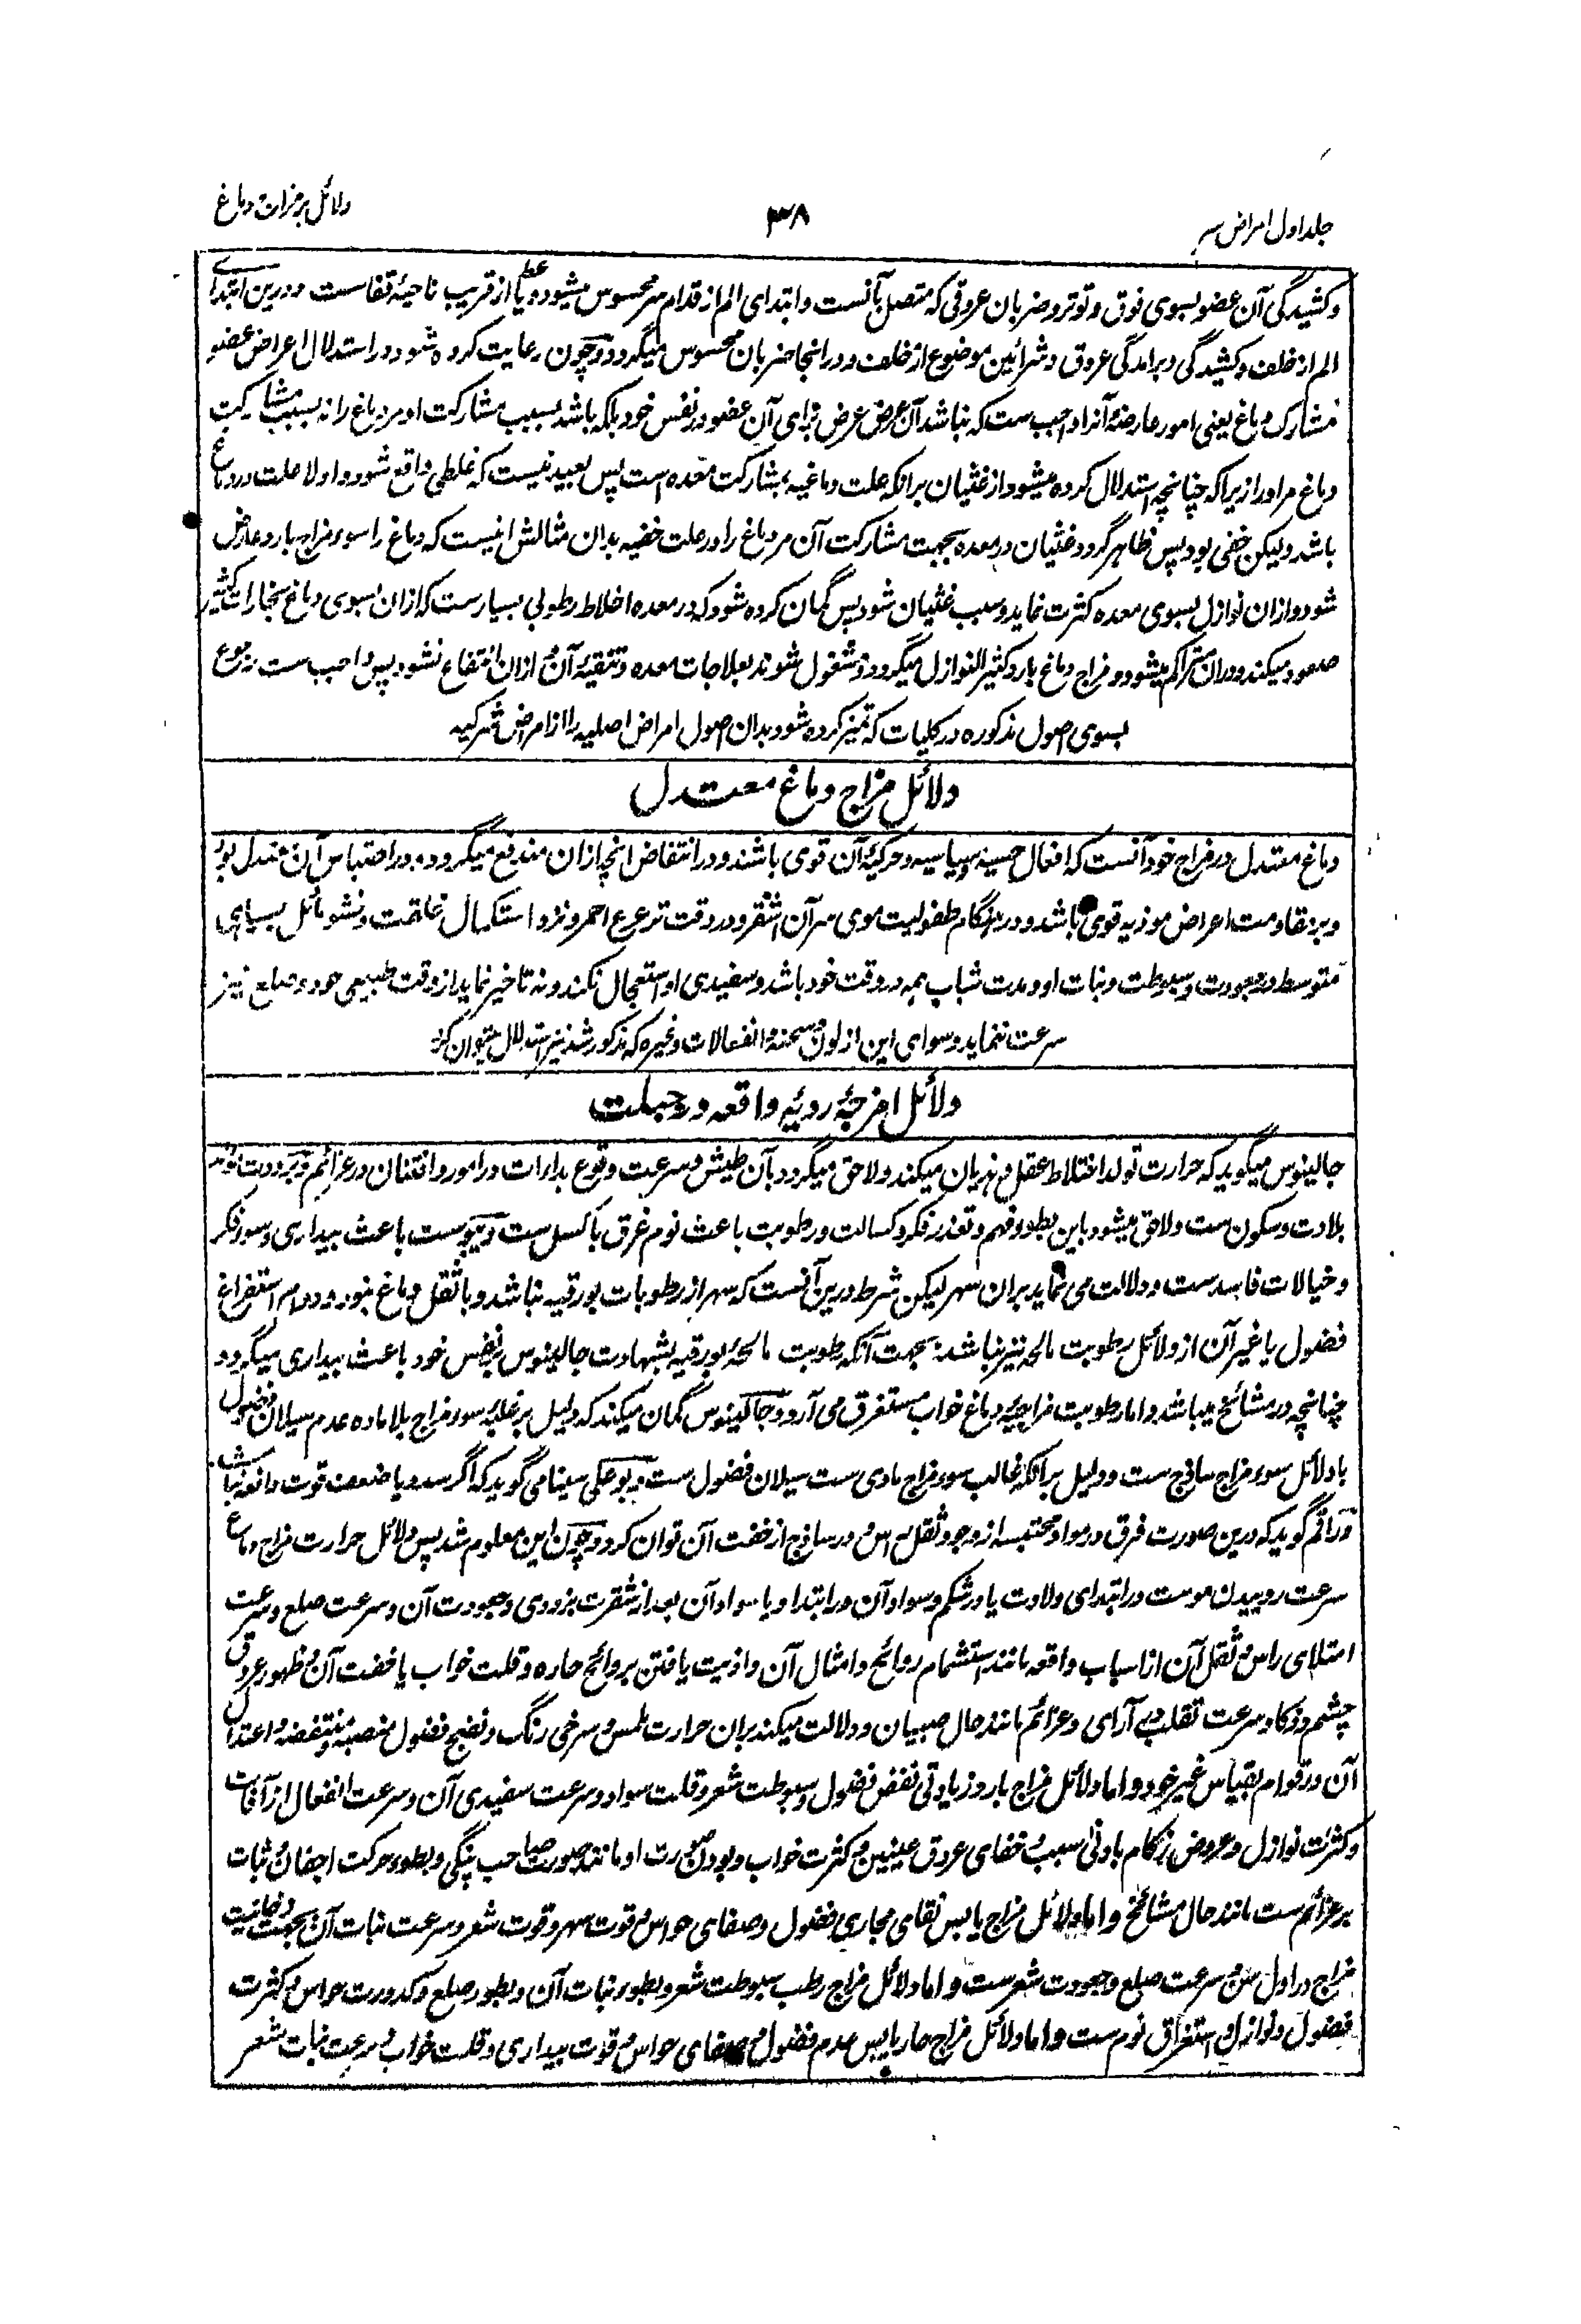 جلد اول امراض سر
۳۸
دلائل بر مزاج دماغ
و کشیدگی آن عضو بسوی فوق و توتر و ضربان عروقی که متصل بآنست و ابتدای الم از قدام سر محسوس میشود و یا از قریب ناحیهٔ قفاست و درین ابتدای
الم از خلف و کشیدگی و برامدگی عروق و شرائین موضوع از خلف و در انجا ضربان محسوس میگردد و چون رعایت کرده شود در استدلال اعراض عضو
مشارک دماغ یعنی امور عارضهٔ آنرا واجب ست که نباشد آن عرض عرض برای آن عضو در نفس خود بلکه باشد بسبب مشارکت او مر دماغ را نه بسبب مشارکت
دماغ مر او را زیرا که چنانچه استدلال کرده میشود از غثیان برانکه علت دماغیه بمشارکت معده است پس بعید نیست که غلطی واقع شود و اولا علت در دماغ
باشد و لیکن خفی بود پس ظاهر گردد غثیان در معده بجهت مشارکت آن مر دماغ را در علت خفیه بدان مثالش اینست که دماغ را سوء مزاج بارد عارض
شود و ازان نوازل بسوی معده کثرت نماید و سبب غثیان شود پس گمان کرده شود که در معده اخلاط رطوبی بسیارست که ازان بسوی دماغ بخارات کثیر
صعود میکند و دران متراکم میشود و مزاج دماغ بارد کثیر النوازل میگردد و مشغول شوند بعلاجات معده و تنقیهٔ آن و ازان انتفاع نشود پس واجب ست رجوع
بسوی اصول مذکوره در کلیات که تمیز کرده شود بدان اصول امراض اصلیه را از امراض شرکیه
دلائل مزاج دماغ معتدل
دماغ معتدل در مزاج خود آنست که افعال حسیه و سیاسیه و حرکیهٔ آن قوی باشند و در انتفاض انچه ازان مندفع میگردد و در احتباس آن معتدل بود
و بر مقاومت اعراض موذیه قوی باشد و در هنگام طفولیت موی سر آن اشقر و در وقت ترعرع احمر و نزد استکمال خلقت و نشو مائل بسیاهی
متوسط در جعودت و سبوطت و نبات او و مدت شباب همه در وقت خود باشد و سفیدی او استعجال نکند و نه تاخیر نماید از وقت طبیعی خود و صلع نیز
سرعت ننماید و سوای این از لون و سحنه و انفعالات و غیره که مذکور شد نیز استدلال میتوان کرد
دلائل امزجهٔ ردیه واقعه در جبلت
جالینوس میگوید که حرارت تولد اختلاط عقل و هذیان میکند و لاحق میگردد بآن طیش و سرعت وقوع بدارات در امور و افتنان در عزائم و برودت مولد
بلادت و سکون ست و لاحق میشود باین بطوء فهم و تعذر فکر و کسالت و رطوبت باعث نوم غرق با کسل ست و یبوست باعث بیداری و سوء فکر
و خیالات فاسد ست و دلالت می نماید بران سهر لیکن شرط درین آنست که سهر از رطوبات بورقیه نباشد و با ثقل دماغ نبود و دوام استفراغ
فضول یا غیر آن از دلائل رطوبت مالحه نیز نباشد بجهت آنکه رطوبت مالحهٔ بورقیه بشهادت جالینوس بنفس خود باعث بیداری میگردد
چنانچه در مشائخ میباشد و اما رطوبت مزاجیهٔ دماغ خواب مستغرق می آرد و جالینوس گمان میکند که دلیل بر غلبهٔ سوء مزاج بلا ماده عدم سیلان فضول
با دلائل سوء مزاج ساذج ست و دلیل برانکه غالب سوء مزاج مادی ست سیلان فضول ست و بوعلی سینا می گوید که اگر سده و یا ضعف قوت دافعه نباشد
و راقم گوید که درین صورت فرق در مواد محتبسه از وجود ثقل راس و در ساذج از خفت آن توان کرد و چون این معلوم شد پس دلائل حرارت مزاج دماغ
سرعت روییدن موست در ابتدای ولادت یا در شکم و سواد آن در ابتدا و یا سواد آن بعد از شقرت بزودی و جعودت آن و سرعت صلع و سرعت
امتلای راس و ثقل آن از اسباب واقعه مانند استشمام روائح و امثال آن و اذیت یافتن بروائح حاره و قلت خواب با خفت آن و ظهور عروق
چشم و ذکا و سرعت تقلب در آرای و عزائم مانند حال صبیان و دلالت میکند بران حرارت ملمس و سرخی رنگ و نضج فضول منصبه و منتفضه و اعتدال
آن در قوام بقیاس غیر خود و اما دلائل مزاج بارد زیادتی نفض فضول و سبوطت شعر و قلت سواد و سرعت سفیدی آن و سرعت انفعال از آفات
و کثرت نوازل و عروض زکام بادنی سبب و خفای عروق عینین و کثرت خواب و بودن صورت او مانند صورت صاحب پنکی و بطوء حرکت اجفان و ثبات
بر عزائم ست مانند حال مشائخ و اما دلائل مزاج یابس نقای مجاری فضول و صفای حواس و قوت سهر و قوت شعر و سرعت نبات آن بجهت دخانیت
مزاج در اول سن و سرعت صلع و جعودت شعرست و اما دلائل مزاج رطب سبوطت شعر و بطوء نبات آن و بطوء صلع و کدورت حواس و کثرت
فضول و نوازل و استغراق نوم ست و اما دلائل مزاج حار یابس عدم فضول و صفای حواس و قوت بیداری و قلت خواب و سرعت نبات شعر